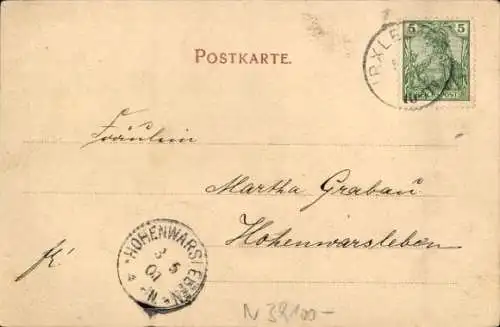 POSTKARTE.
5 5
IRXLE
Fräulein
Martha Grabau
Hohenwarsleben
fr.
HOHENWARSLEBEN
3 5
01
4-N
N 39100-